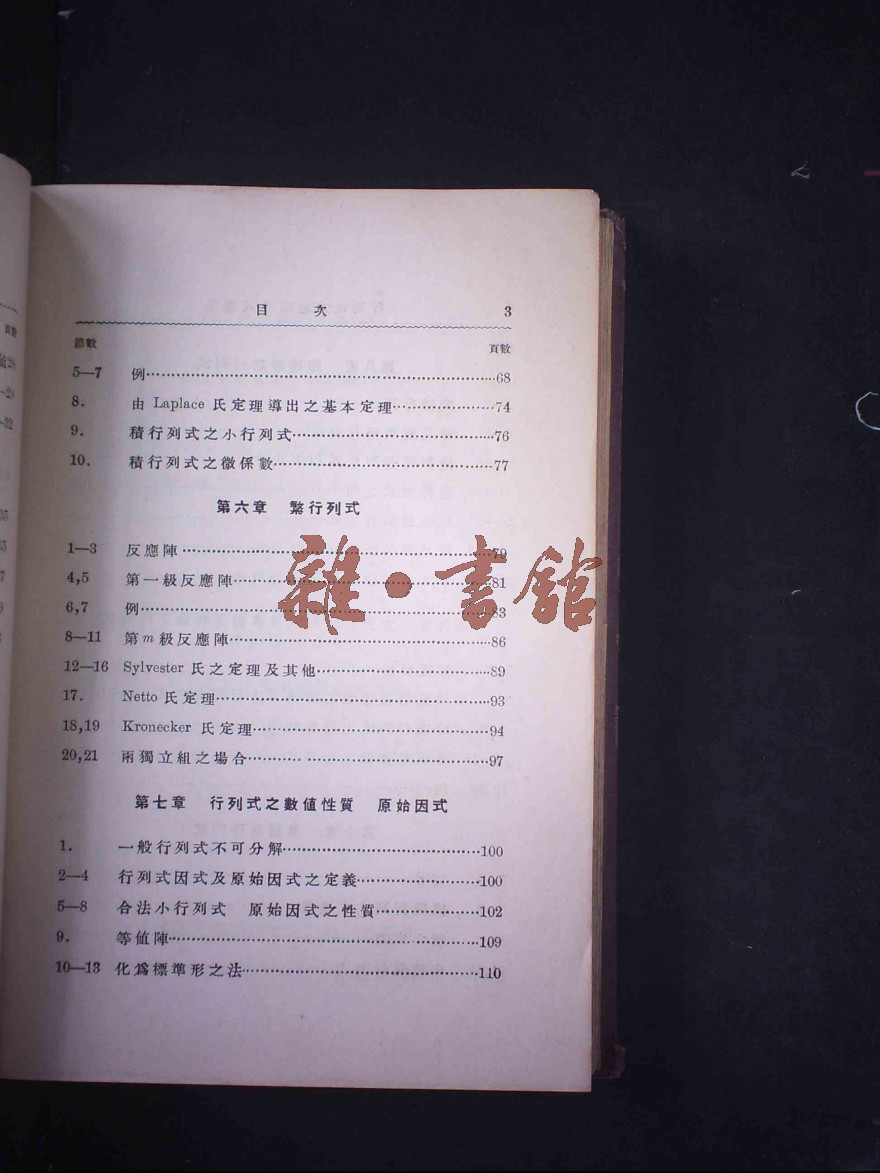 目 次 3
節數 頁數
5—7 例 68
8. 由 Laplace 氏定理導出之基本定理 74
9. 積行列式之小行列式 76
10. 積行列式之微係數 77
第六章 繁行列式
1—3 反應陣 79
4,5 第一級反應陣 81
6,7 例 83
8—11 第 m 級反應陣 86
12—16 Sylvester 氏之定理及其他 89
17. Netto 氏定理 93
18,19 Kronecker 氏定理 94
20,21 兩獨立組之場合 97
第七章 行列式之數値性質 原始因式
1. 一般行列式不可分解 100
2—4 行列式因式及原始因式之定義 100
5—8 合法小行列式 原始因式之性質 102
9. 等値陣 109
10—13 化爲標準形之法 110
雜·書館